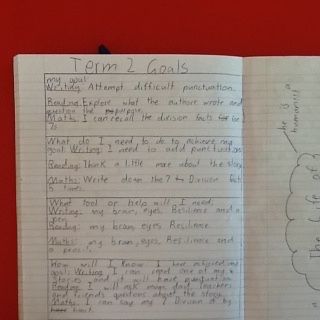 Term 2 Goals
my goal:
Writing: Attempt difficult punctuation.
Reading: Explore what the author wrote and
question the purpose.
Maths: I can recall the division facts for
7s
What do I need to do to achieve my
goal: Writing: I need to add punctuation
Reading: Think a little more about the story
Maths: Write down the 7 Division facts
5 times.
What tool or help will I need:
Writing: my brain, eyes, Resilience and a
pen
Reading: my brain, eyes Resilience.
Maths: my brain, eyes, Resilience and
a pencil.
How will I know I have achieved my
goal: Writing: I can read one of my
stories and it will have punctuation
Reading: I will ask mum dad Teachers
and friends questions about the story
Maths: I can say my 7 Division by
heart.
he is a
humanist
The life of